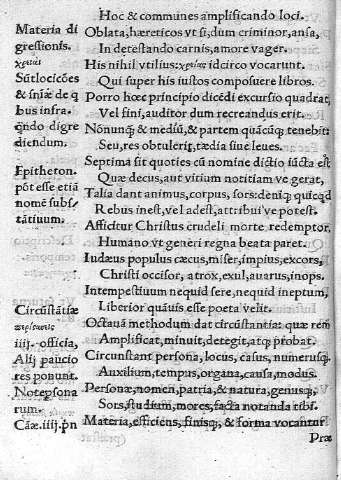 Hoc & communes amplificando loci.
Materia di
gressionis.
χρείαι
Sūt locicōēs
& sn̄iæ de q
bus infra.
qn̄do digre
diendum.
Oblata, hæreticos vt si, dum criminor, ansa,
In detestando carnis, amore vager.
His nihil vtilius: χρείας idcirco vocarunt.
Qui super his iustos composuere libros.
Porro hoc principio dicēdi excursio quadrat,
Vel fini, auditor dum recreandus erit.
Nōnunq̄ & mediū, & partem quācūq; tenebit:
Seu, res obtulerit, tædia siue leues.
Epitheton.
pōt esse etiā
nomē subs/
tātiuum.
Septima sit quoties cū nomine dictio iūcta est
Quæ decus, aut vitium notitiam ve gerat,
Talia dant animus, corpus, sors: deniq; quicqd
Rebus inest, vel adest, attribui ve potest.
Afficitur Christus crudeli morte redemptor,
Humano vt generi regna beata paret.
Iudæus populus cæcus, miser, impius, excors,
Christi occisor, atrox, exul, auarus, inops.
Intempestiuum nequid sere, nequid ineptum,
Liberior quāuis esse poeta velit.
Circūstātiæ
περίστασις
iiij. officia,
Alij paucio
res ponunt.
Notę psona
rum.
Cāæ. iiij. pn
Octauā methodum dat circūstantia: quæ rem
Amplificat, minuit, detegit, atq; probat.
Circunstant persona, locus, casus, numerusq;
Auxilium, tempus, organa, causa, modus.
Personæ, nomen, patria, & natura, genusq;
Sors, studium, mores, facta notanda tibi.
Materia, efficiens, finisq;, & forma vocantur
Præ